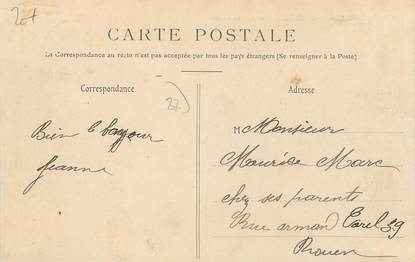 20f
CARTE POSTALE
La Correspondance au recto n'est pas acceptée par tous les pays étrangers (Se renseigner à la Poste)
Correspondance
27
Bien le bonjour
Jeanne
Adresse
M Monsieur
Maurice Marc
chez ses parents
Rue armand Carel 59
Rouen